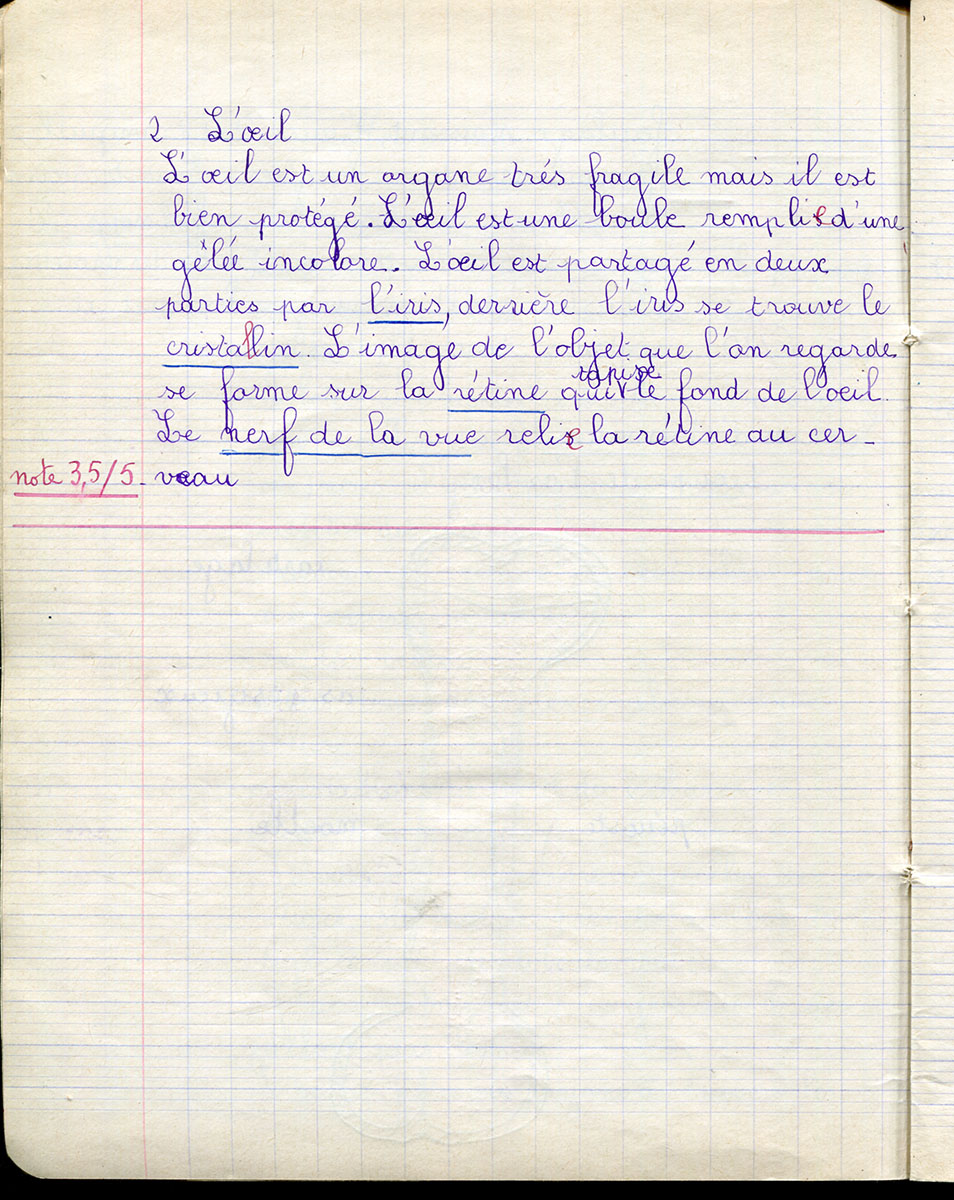 2 L'œil
L'œil est un organe trés fragile mais il est
bien protégé. L'œil est une boule remplie d'une
gêlée incolore. L'œil est partagé en deux
parties par l'iris, derrière l'iris se trouve le
cristallin. L'image de l'objet que l'on regarde
tapisse
se forme sur la rétine qui le fond de l'oeil.
Le nerf de la vue relie la rétine au cer-
note 3,5/5. veau